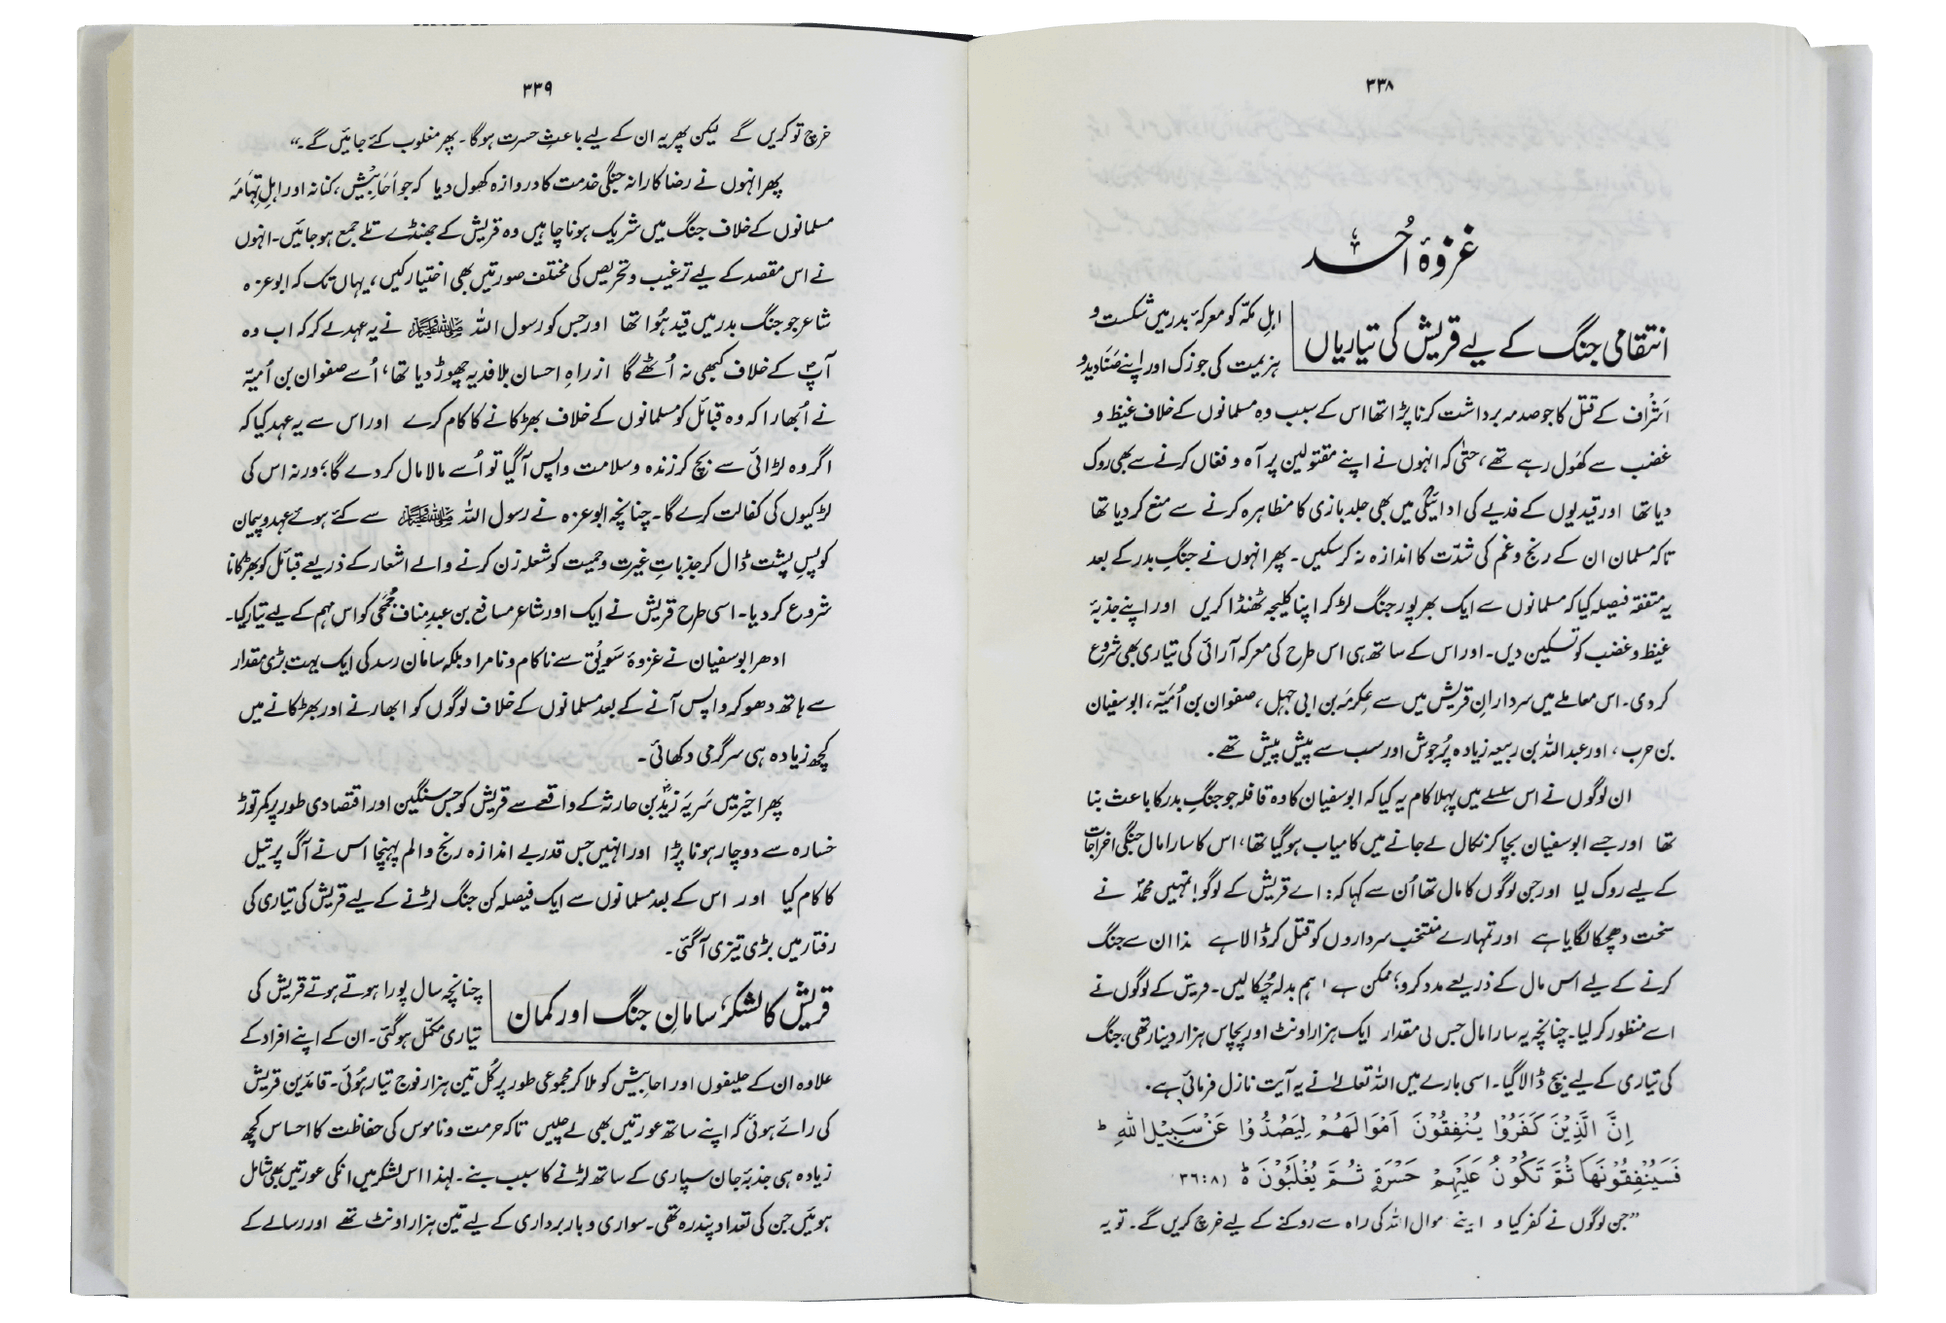 ۳۳۸
غزوۂ احد
انتقامی جنگ کے لیے قریش کی تیاریاں
اہلِ مکہ کو معرکۂ بدر میں شکست و
ہزیمت کی جو زک اور اپنے صَنَادید و
اَشْراف کے قتل کا جو صدمہ برداشت کرنا پڑا تھا اس کے سبب وہ مسلمانوں کے خلاف غیظ و
غضب سے کھَول رہے تھے، حتٰی کہ انہوں نے اپنے مقتولین پر آہ و فغاں کرنے سے بھی روک
دیا تھا اور قیدیوں کے فدیے کی ادائیگی میں بھی جلد بازی کا مظاہرہ کرنے سے منع کر دیا تھا
تاکہ مسلمان ان کے رنج و غم کی شدّت کا اندازہ نہ کر سکیں۔ پھر انہوں نے جنگِ بدر کے بعد
یہ متفقہ فیصلہ کیا کہ مسلمانوں سے ایک بھرپور جنگ لڑ کر اپنا کلیجہ ٹھنڈا کریں اور اپنے جذبۂ
غیظ و غضب کو تسکین دیں۔ اور اس کے ساتھ ہی اس طرح کی معرکہ آرائی کی تیاری بھی شروع
کر دی۔ اس معاملے میں سردارانِ قریش میں سے عِکرمَہ بن ابی جہل، صفوان بن اُمَیّہ، ابوسفیان
بن حرب، اور عبداللہ بن ربیعہ زیادہ پُرجوش اور سب سے پیش پیش تھے۔
ان لوگوں نے اس سلسلے میں پہلا کام یہ کیا کہ ابوسفیان کا وہ قافلہ جو جنگِ بدر کا باعث بنا
تھا اور جسے ابوسفیان بچا کر نکال لے جانے میں کامیاب ہوگیا تھا، اس کا سارا مال جنگی اخراجات
کے لیے روک لیا اور جن لوگوں کا مال تھا اُن سے کہا کہ: اے قریش کے لوگو! تمہیں محمدؐ نے
سخت دھچکا لگایا ہے اور تمہارے منتخب سرداروں کو قتل کر ڈالا ہے ہذا ان سے جنگ
کرنے کے لیے اس مال کے ذریعے مدد کرو؛ ممکن ہے ہم بدلہ چُکا لیں۔ قریش کے لوگوں نے
اسے منظور کر لیا۔ چنانچہ یہ سارا مال جس کی مقدار ایک ہزار اونٹ اور پچاس ہزار دینار تھی، جنگ
کی تیاری کے لیے بیچ ڈالا گیا۔ اسی بارے میں اللہ تعالےٰ نے یہ آیت نازل فرمائی ہے۔
اِنَّ الَّذِیْنَ كَفَرُوْا یُنْفِقُوْنَ اَمْوَالَهُمْ لِیَصُدُّوْا عَنْ سَبِیْلِ اللهِ ط
فَسَیُنْفِقُوْنَهَا ثُمَّ تَكُوْنُ عَلَیْهِمْ حَسْرَةً ثُمَّ یُغْلَبُوْنَ ط (۳۶:۸
”جن لوگوں نے کفر کیا و اپنے موال اللہ کی راہ سے روکنے کے لیے خرچ کریں گے۔ تو یہ
۳۳۹
خرچ تو کریں گے لیکن پھر یہ ان کے لیے باعثِ حسرت ہوگا۔ پھر مغلوب کئے جائیں گے۔“
پھر انہوں نے رضا کارانہ جنگی خدمت کا دروازہ کھول دیا کہ جو اَحَابِیْش، کنانہ اور اہلِ تِہَامَہ
مسلمانوں کے خلاف جنگ میں شریک ہونا چاہیں وہ قریش کے جھنڈے تلے جمع ہو جائیں۔ انہوں
نے اس مقصد کے لیے ترغیب و تحریص کی مختلف صورتیں بھی اختیار کیں، یہاں تک کہ ابوعزہ
شاعر جو جنگ بدر میں قید ہُوا تھا اور جس کو رسول اللہ ﷺ نے یہ عہد لے کر کہ اب وہ
آپؐ کے خلاف کبھی نہ اُٹھے گا ازراہِ احسان بلا فدیہ چھوڑ دیا تھا، اُسے صفوان بن اُمیّہ
نے اُبھارا کہ وہ قبائل کو مسلمانوں کے خلاف بھڑکانے کا کام کرے اور اس سے یہ عہد کیا کہ
اگر وہ لڑائی سے بچ کر زندہ و سلامت واپس آگیا تو اُسے مالا مال کر دے گا؛ ورنہ اس کی
لڑکیوں کی کفالت کرے گا۔ چنانچہ ابوعزہ نے رسول اللہ ﷺ سے کئے ہوئے عہد و پیمان
کو پسِ پشت ڈال کر جذباتِ غیرت و حمیت کو شعلہ زن کرنے والے اشعار کے ذریعے قبائل کو بھڑکانا
شروع کر دیا۔ اسی طرح قریش نے ایک اور شاعر مسافع بن عبد مناف جُمَحِی کو اس مہم کے لیے تیار کیا۔
ادھر ابوسفیان نے غزوۂ سَوِیْق سے ناکام و نامراد بلکہ سامان رسد کی ایک بہت بڑی مقدار
سے ہاتھ دھو کر واپس آنے کے بعد مسلمانوں کے خلاف لوگوں کو ابھارنے اور بھڑکانے میں
کچھ زیادہ ہی سرگرمی دکھائی۔
پھر اخیر میں سَرِیَہ زیدؓ بن حارثہ کے واقعے سے قریش کو جس سنگین اور اقتصادی طور پر کمر توڑ
خسارہ سے دوچار ہونا پڑا اور انہیں جس قدر بے اندازہ رنج و الم پہنچا اس نے آگ پر تیل
کا کام کیا اور اس کے بعد مسلمانوں سے ایک فیصلہ کن جنگ لڑنے کے لیے قریش کی تیاری کی
رفتار میں بڑی تیزی آگئی۔
قریش کا لشکر، سامانِ جنگ اور کمان
چنانچہ سال پورا ہوتے ہوتے قریش کی
تیاری مکمّل ہوگئی۔ ان کے اپنے افراد کے
علاوہ ان کے حلیفوں اور احابیش کو ملا کر مجموعی طور پر کُل تین ہزار فوج تیار ہُوئی۔ قائدین قریش
کی رائے ہوئی کہ اپنے ساتھ عورتیں بھی لے چلیں تاکہ حرمت و ناموس کی حفاظت کا احساس کچھ
زیادہ ہی جذبۂ جان سپاری کے ساتھ لڑنے کا سبب بنے۔ لہذا اس لشکر میں انکی عورتیں بھی شامل
ہوئیں جن کی تعداد پندرہ تھی۔ سواری و باربرداری کے لیے تین ہزار اونٹ تھے اور رسالے کے